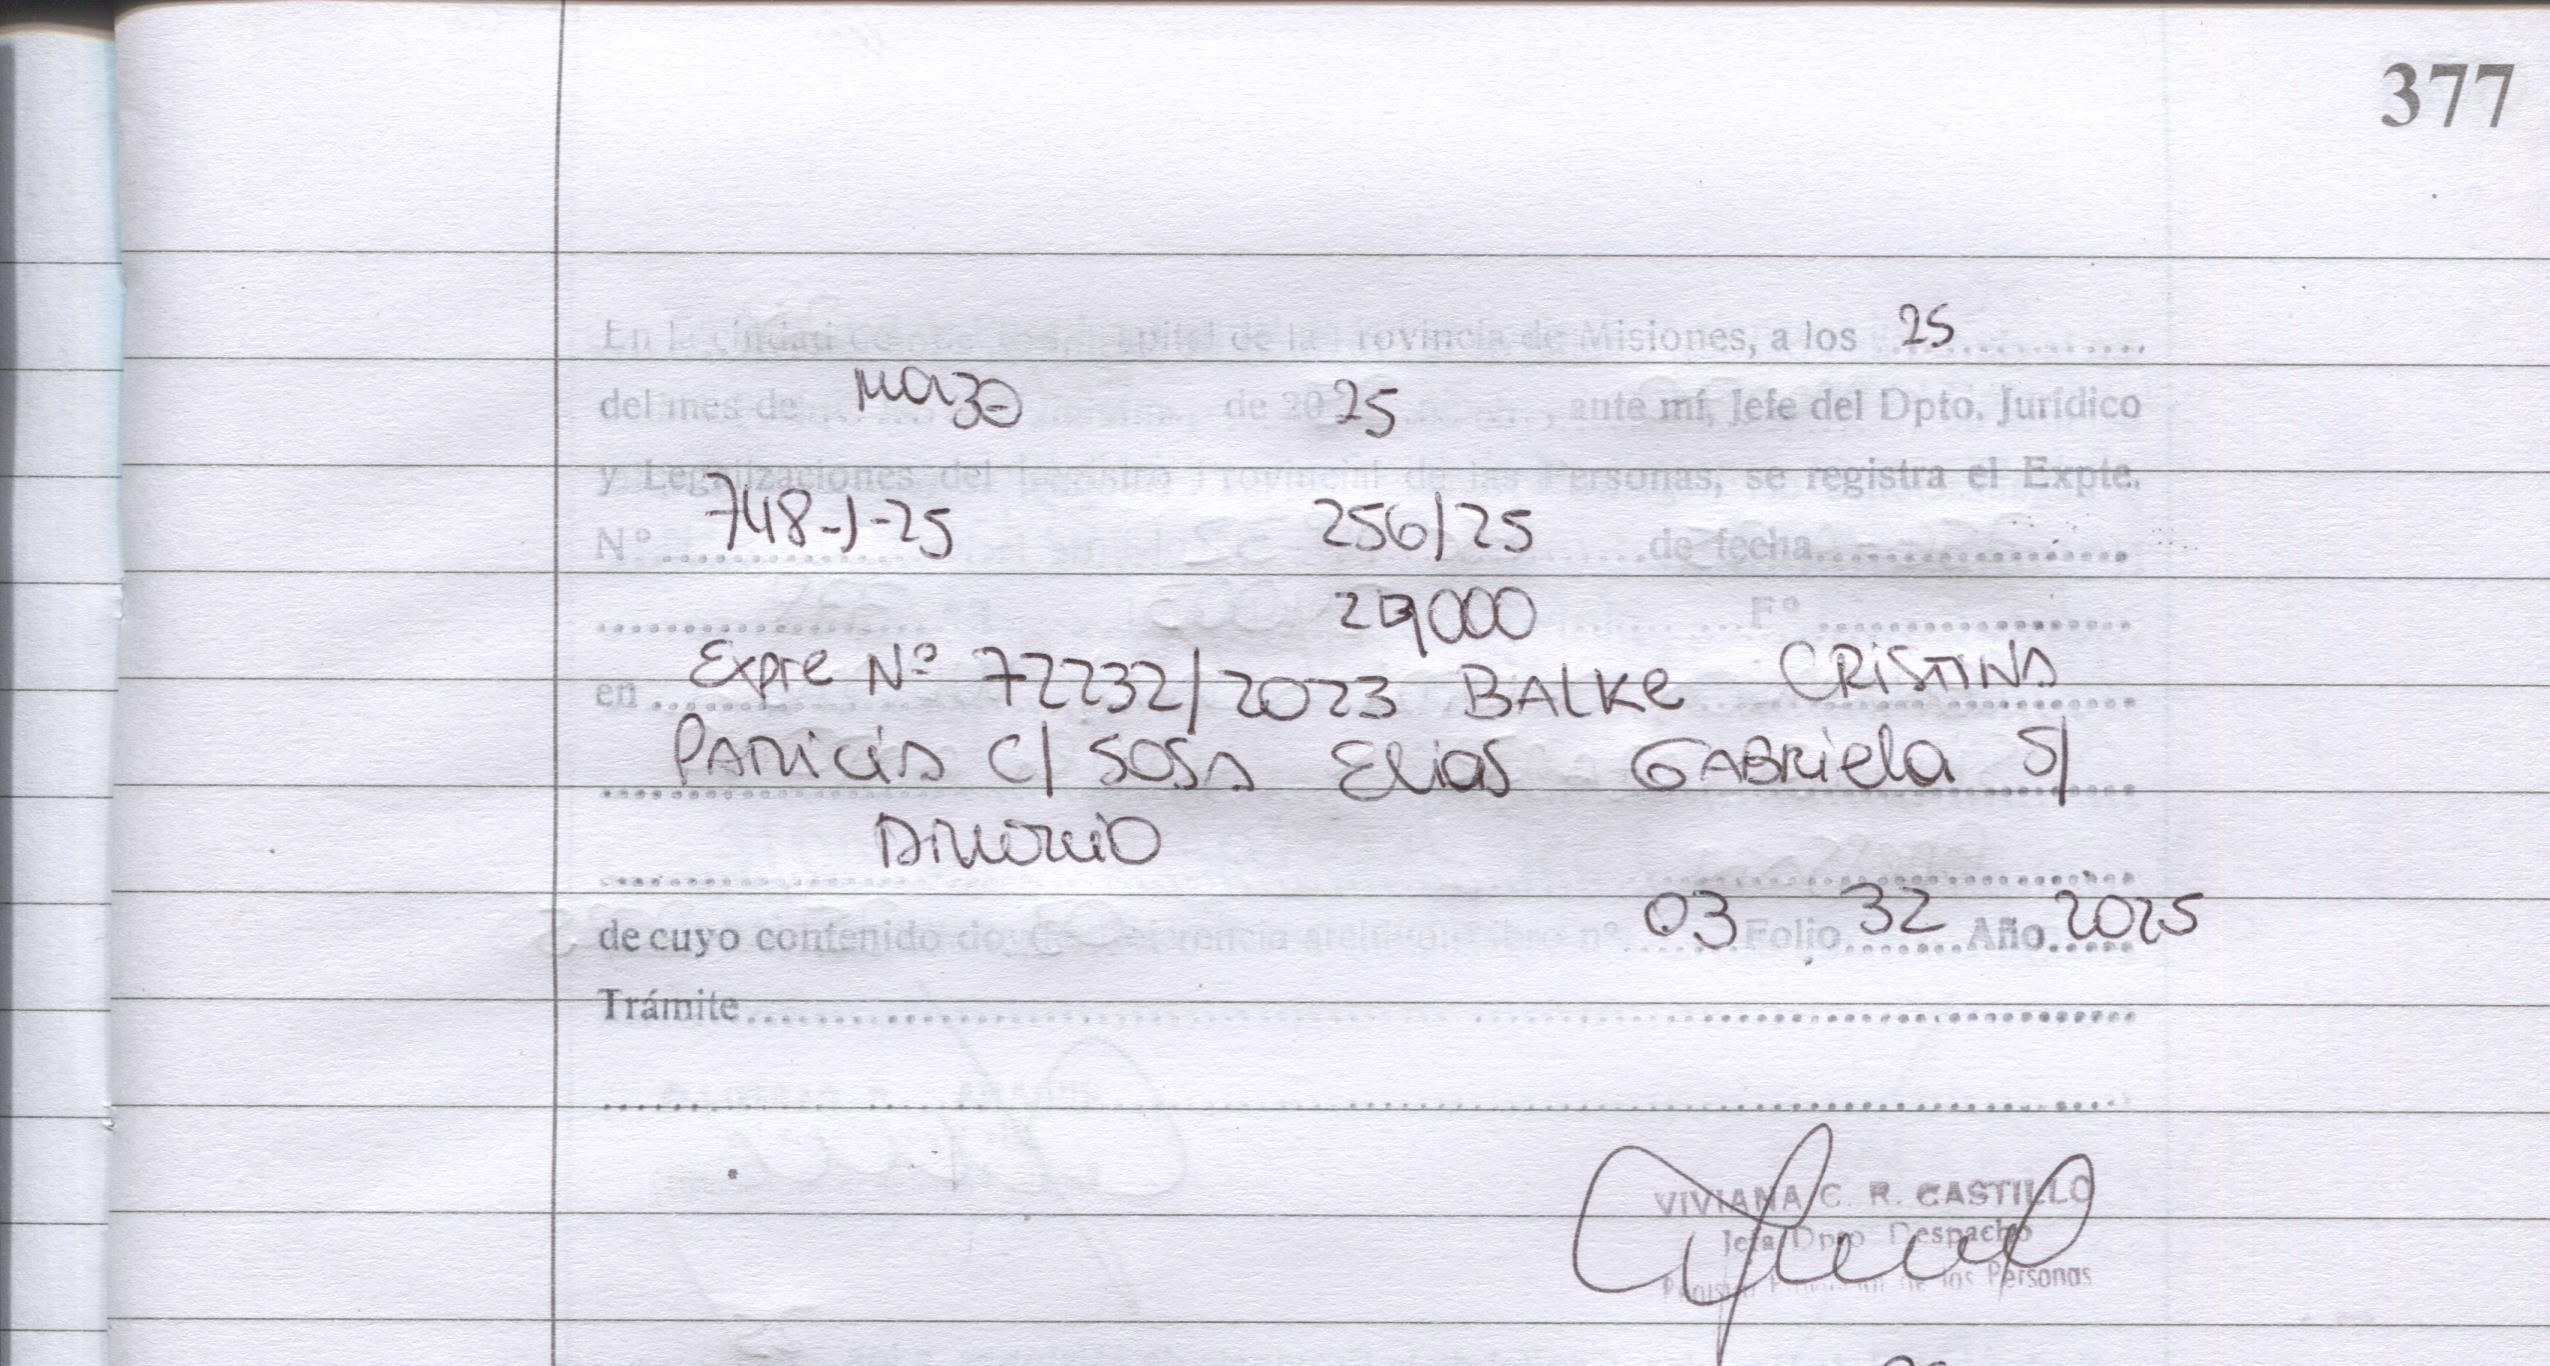 377
En la ciudad de capital de la Provincia de Misiones, a los 25
del mes de Marzo de 2025, ante mí, Jefe del Dpto. Jurídico
y Legalizaciones del Registro Provincial de las Personas, se registra el Expte.
Nº 748-J-25 256/25 de fecha
000 Fº
en Expte Nº 72232/2023 BALKE CRISTINA
PATRICIA C/ SOSA Elias GABRiela S/
DIVORCIO
de cuyo contenido doy 03 Folio 32 Año 2025
Trámite
VIVIANA C. R. CASTILLO
Jefa Dpto Despacho
de las Personas